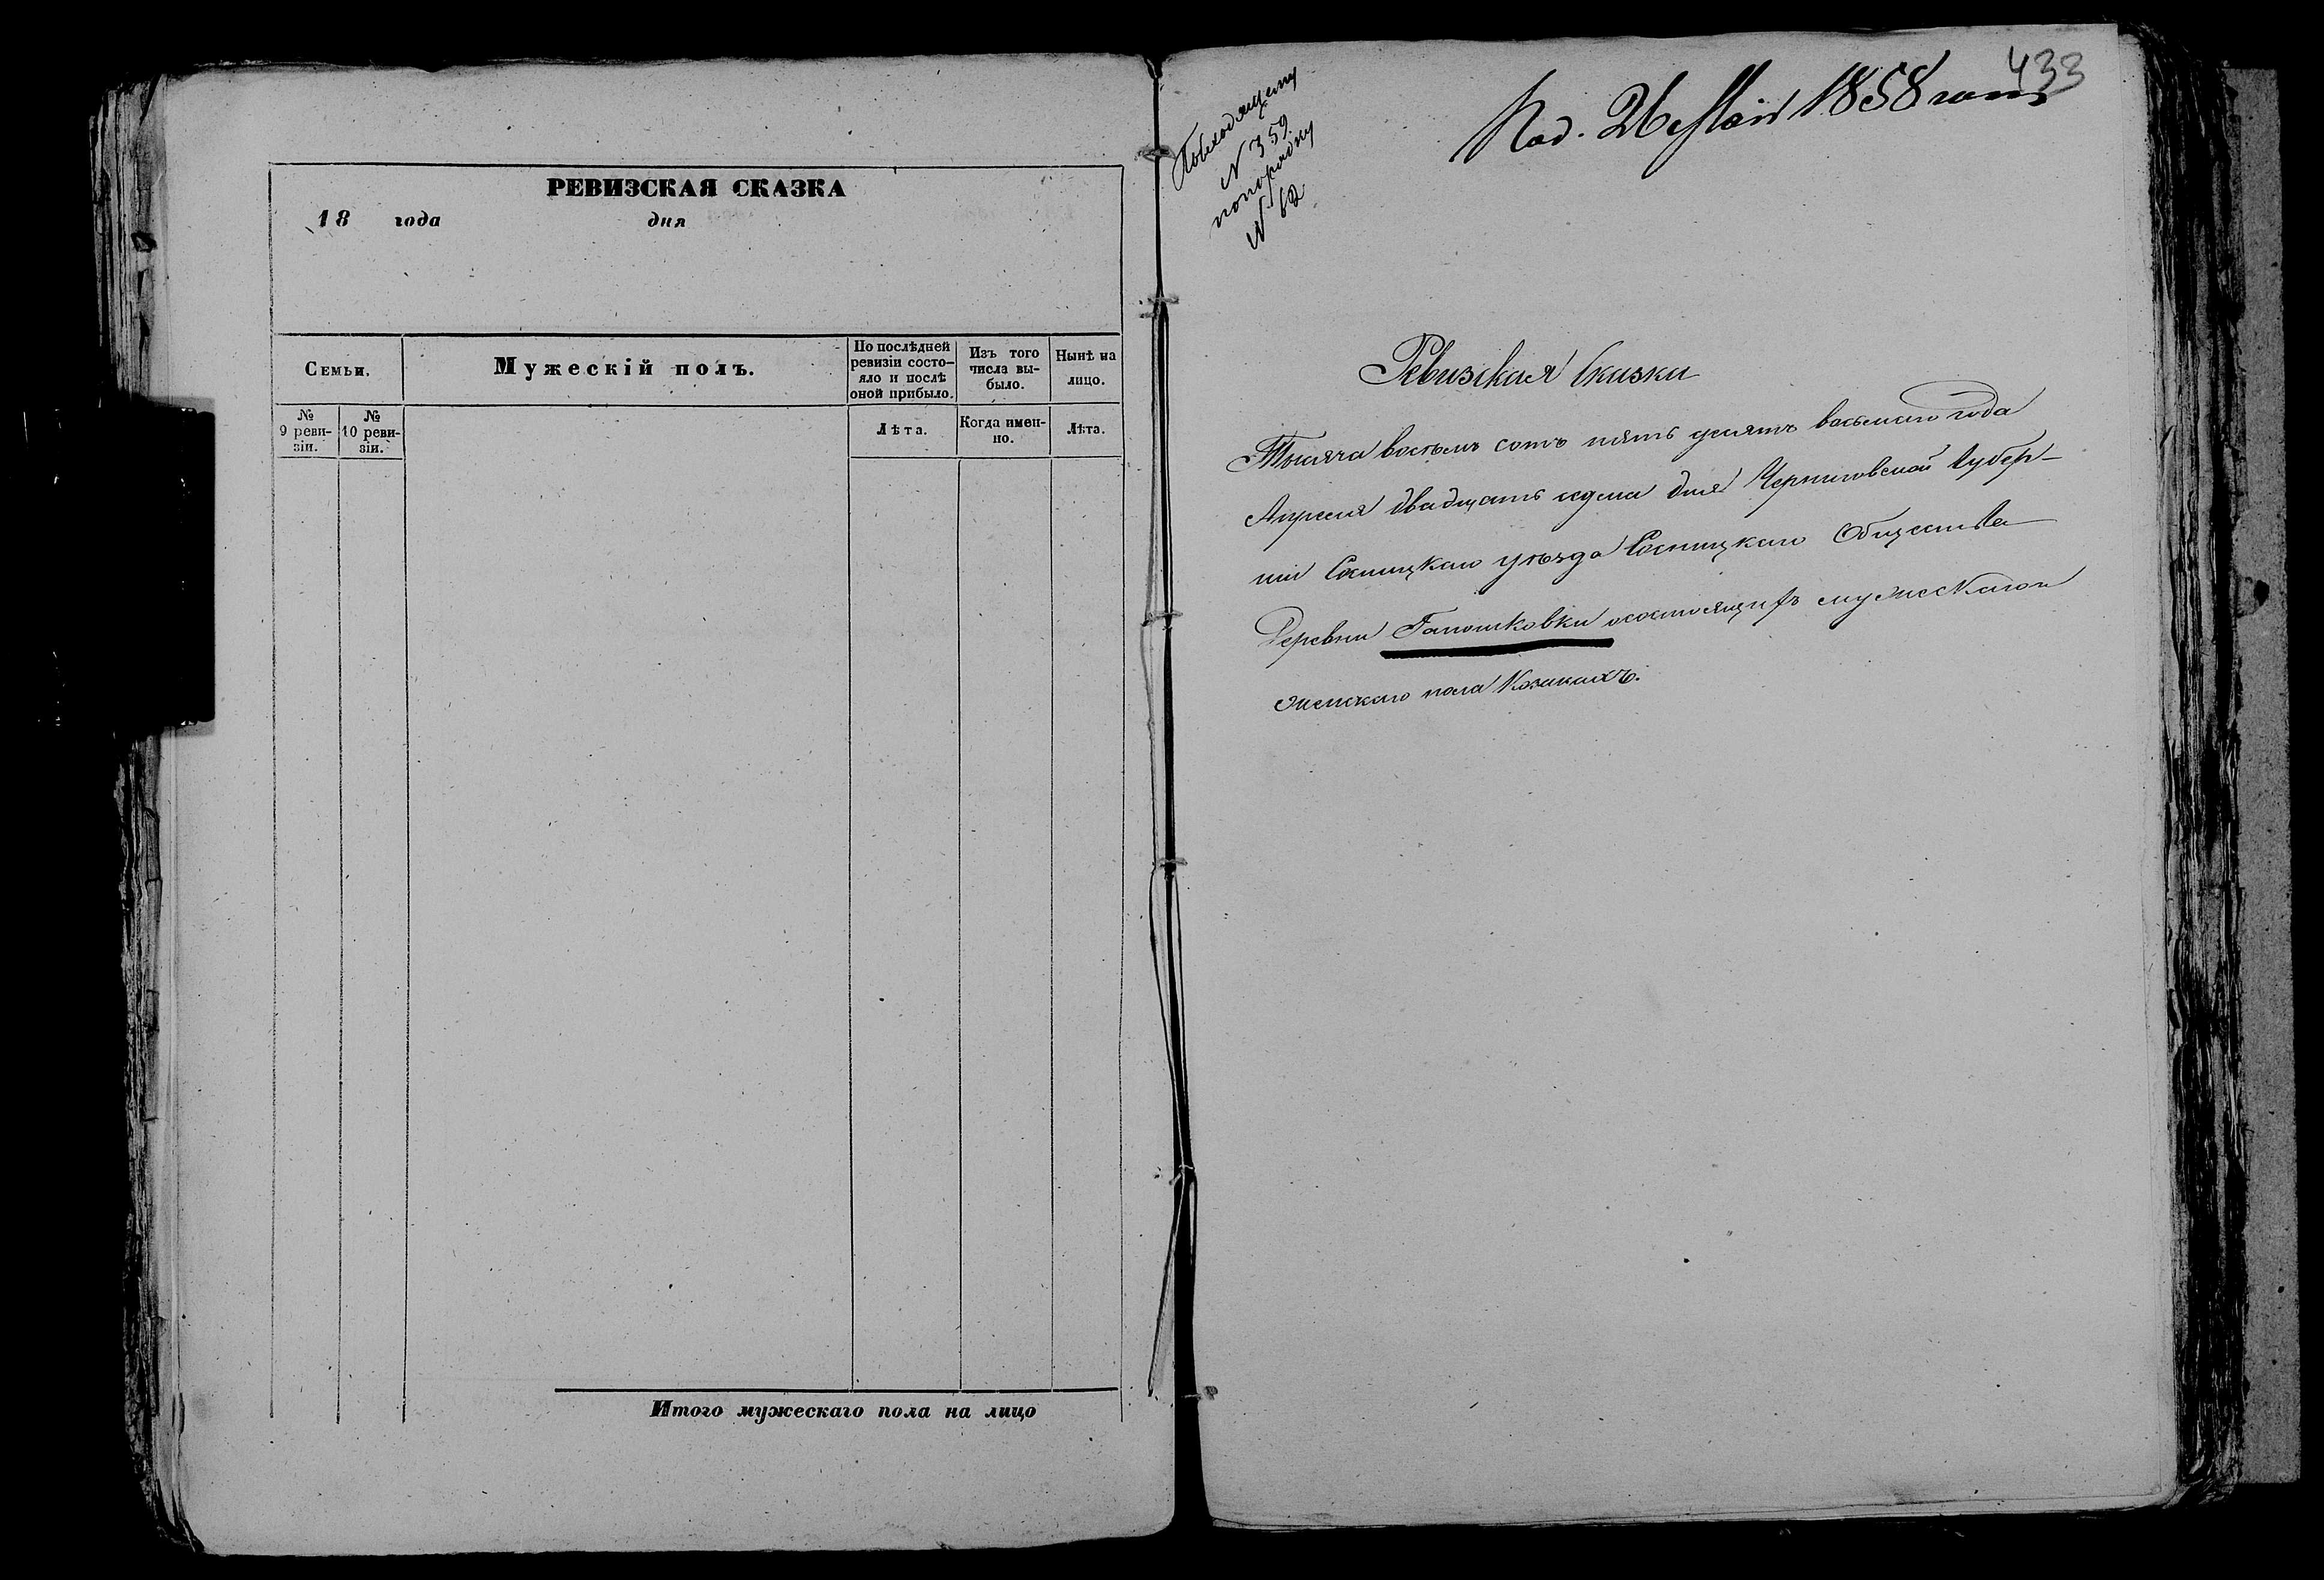 РЕВИЗСКАЯ СКАЗКА
18 года дня
Семьи.
Мужескій полъ.
По послѣдней
ревизіи состо-
яло и послѣ
оной прибыло.
Изъ того
числа вы-
было.
Нынѣ на
лицо.
№
9 реви-
зіи.
№
10 реви-
зіи.
Лѣта.
Когда имен-
но.
Лѣта.
Итого мужескаго пола на лицо
433
Под. 26 Маія 1858 года
Повходящему
N 359
попорядку
N 62
Ревизская Сказка
Тысяча восемь сотъ пять десятъ восьмаго года
Апреля двадцать седма дня Черниговской Губер-
ніи Сосницкаго уѣзда Сосницкаго Общества
Деревни Гапошковки осостоящихъ мужескаго и
женскаго пола Козакахъ.